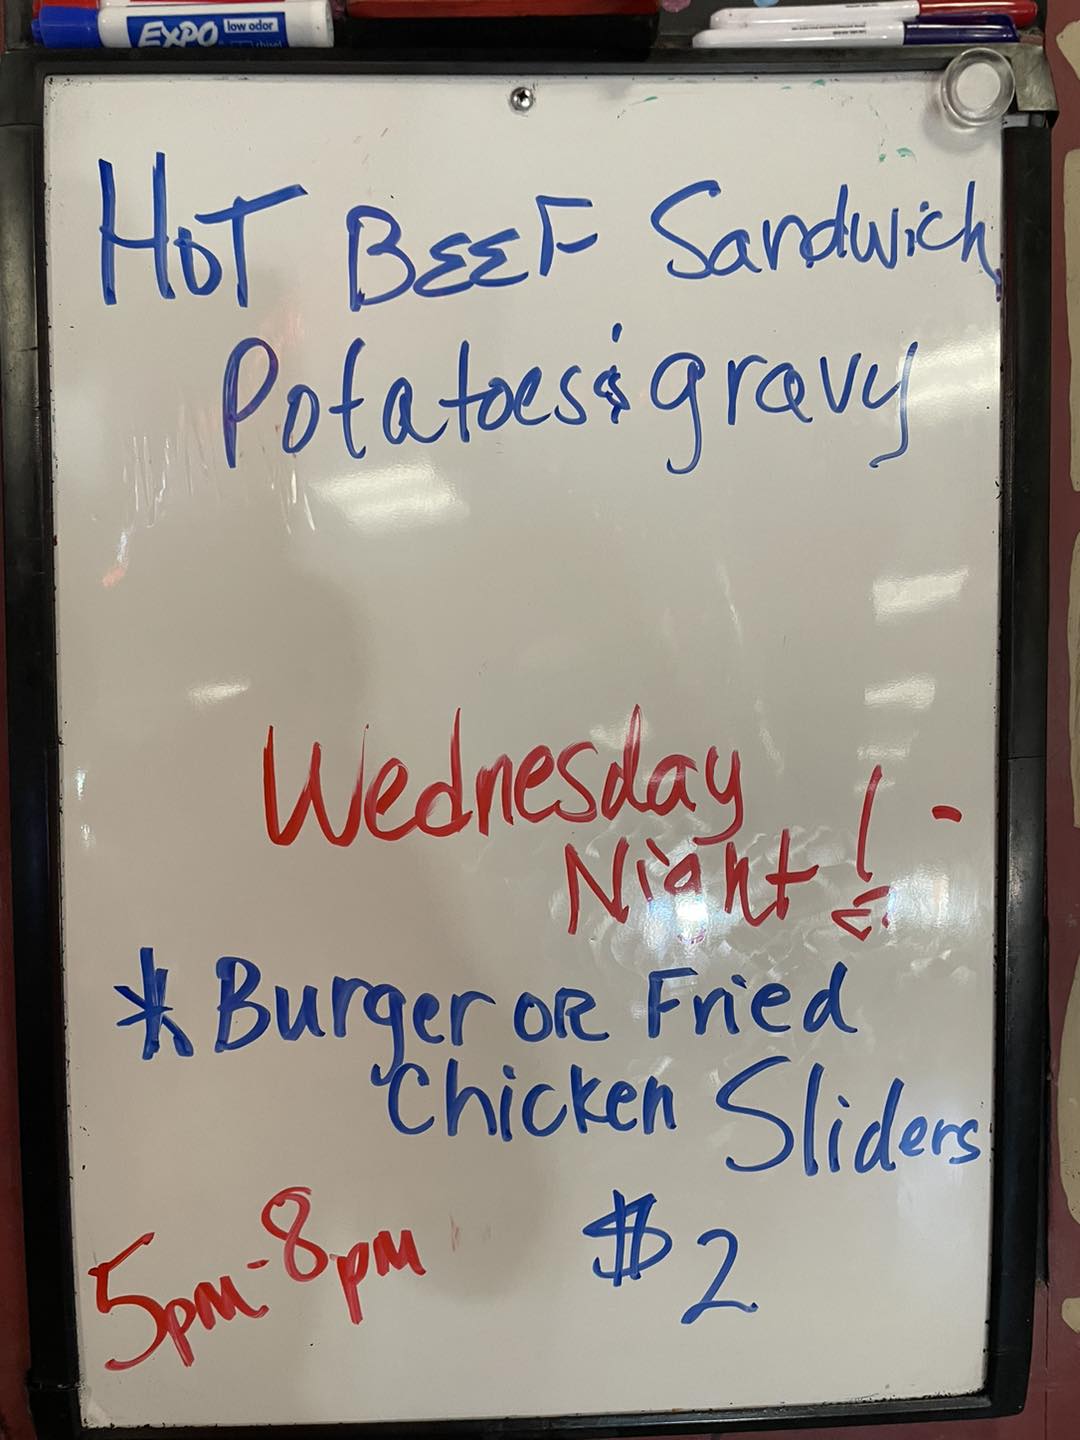 EXPO low odor
chisel
HOT BEEF Sandwich
Potatoes & gravy
Wednesday
Night!
* Burger OR Fried
Chicken Sliders
5pm-8pm $2